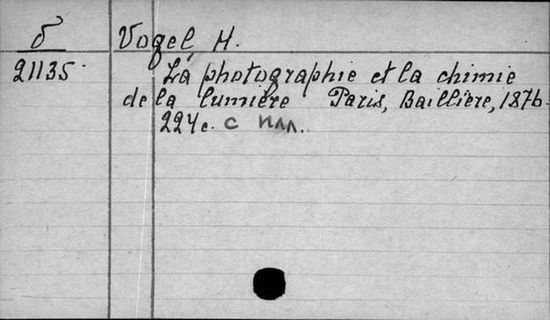 б Vogel, H.
21135. La photographie et la chimie
de la lumière Paris, Baillière, 1876.
224с. с илл.